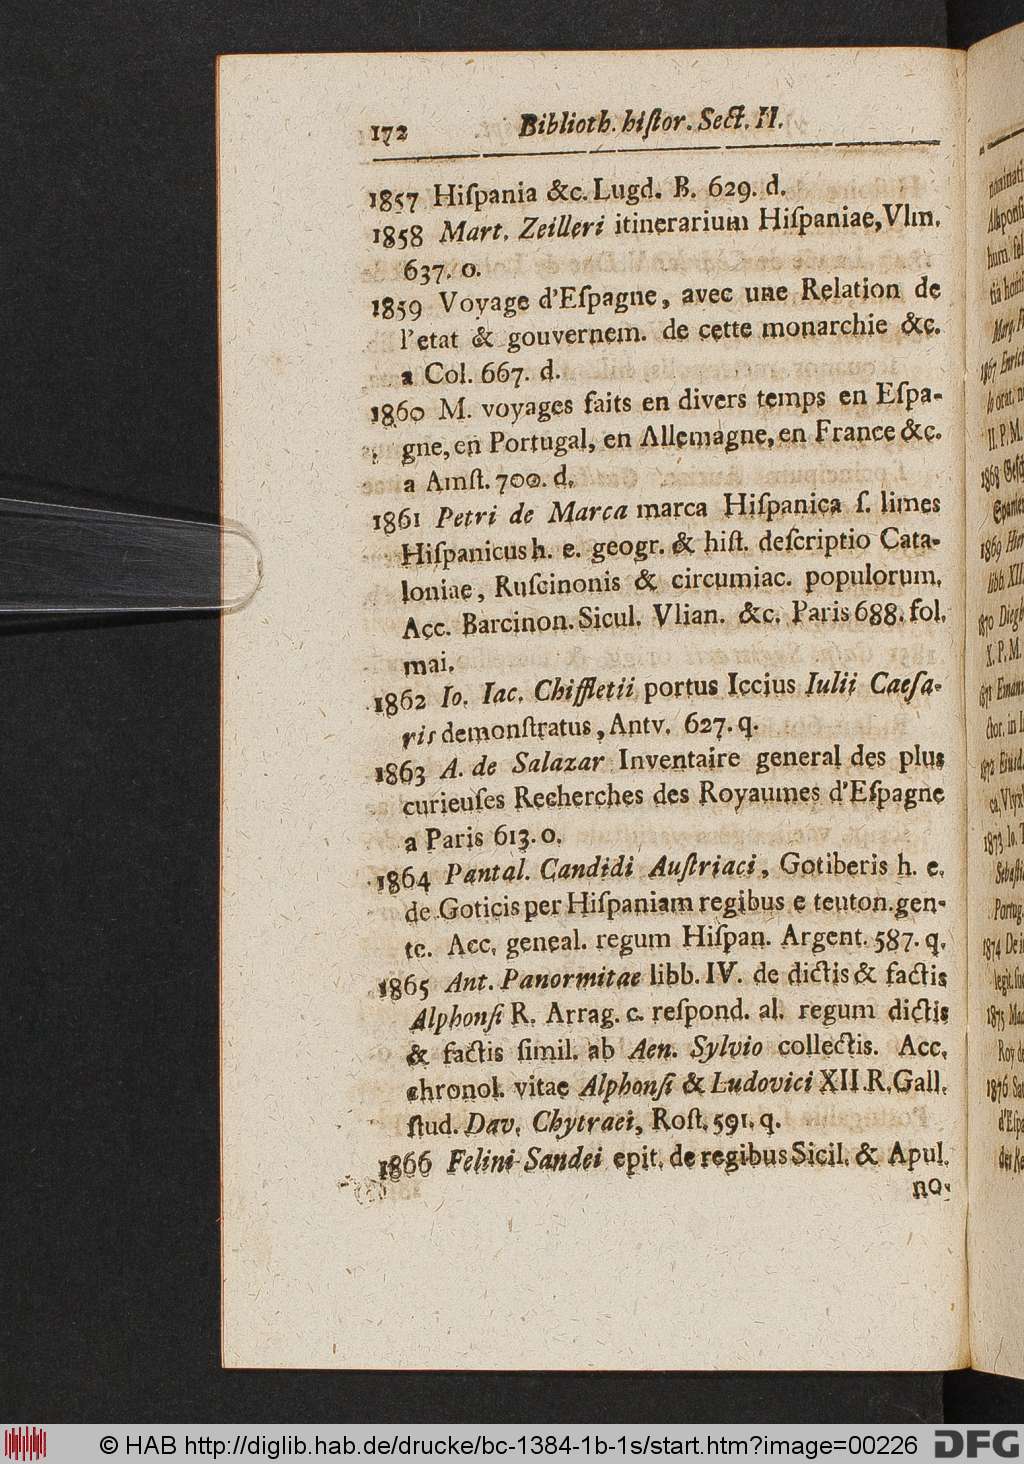 172 Biblioth. hiſtor. Sect. II.
1857 Hiſpania &c. Lugd. B. 629. d.
1858 Mart. Zeilleri itinerarium Hiſpaniae, Vlm.
637. o.
1859 Voyage d'Eſpagne, avec une Relation de
l'etat & gouvernem. de cette monarchie &c.
a Col. 667. d.
1860 M. voyages faits en divers temps en Eſpa-
gne, en Portugal, en Allemagne, en France &c.
a Amſt. 700. d.
1861 Petri de Marca marca Hiſpanica ſ. limes
Hiſpanicus h. e. geogr. & hiſt. deſcriptio Cata-
loniae, Ruſcinonis & circumiac. populorum.
Acc. Barcinon. Sicul. Vlian. &c. Paris 688. fol.
mai.
1862 Io. Iac. Chiffletii portus Iccius Iulii Caeſa-
ris demonſtratus, Antv. 627. q.
1863 A. de Salazar Inventaire general des plus
curieuſes Recherches des Royaumes d'Eſpagne
a Paris 613. o.
1864 Pantal. Candidi Auſtriaci, Gotiberis h. e.
de Goticis per Hiſpaniam regibus e teuton. gen-
te. Acc. geneal. regum Hiſpan. Argent. 587. q.
1865 Ant. Panormitae libb. IV. de dictis & factis
Alphonſi R. Arrag. c. reſpond. al. regum dictis
& factis ſimil. ab Aen. Sylvio collectis. Acc.
chronol. vitae Alphonſi & Ludovici XII. R. Gall.
ſtud. Dav. Chytraei, Roſt. 591. q.
1866 Felini Sandei epit. de regibus Sicil. & Apul.
no-
1867
II. P. M.
1868
1869
libb. XII
1870
X. P. M.
1871
1872
1873 Io.
1874 De
1875
Roy de
1876
© HAB http://diglib.hab.de/drucke/bc-1384-1b-1s/start.htm?image=00226 DFG